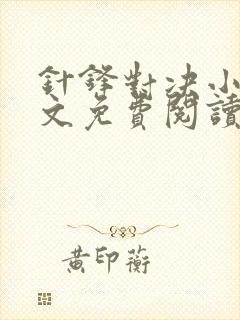 針鋒對决小
文免費閱讀
黄印蘅